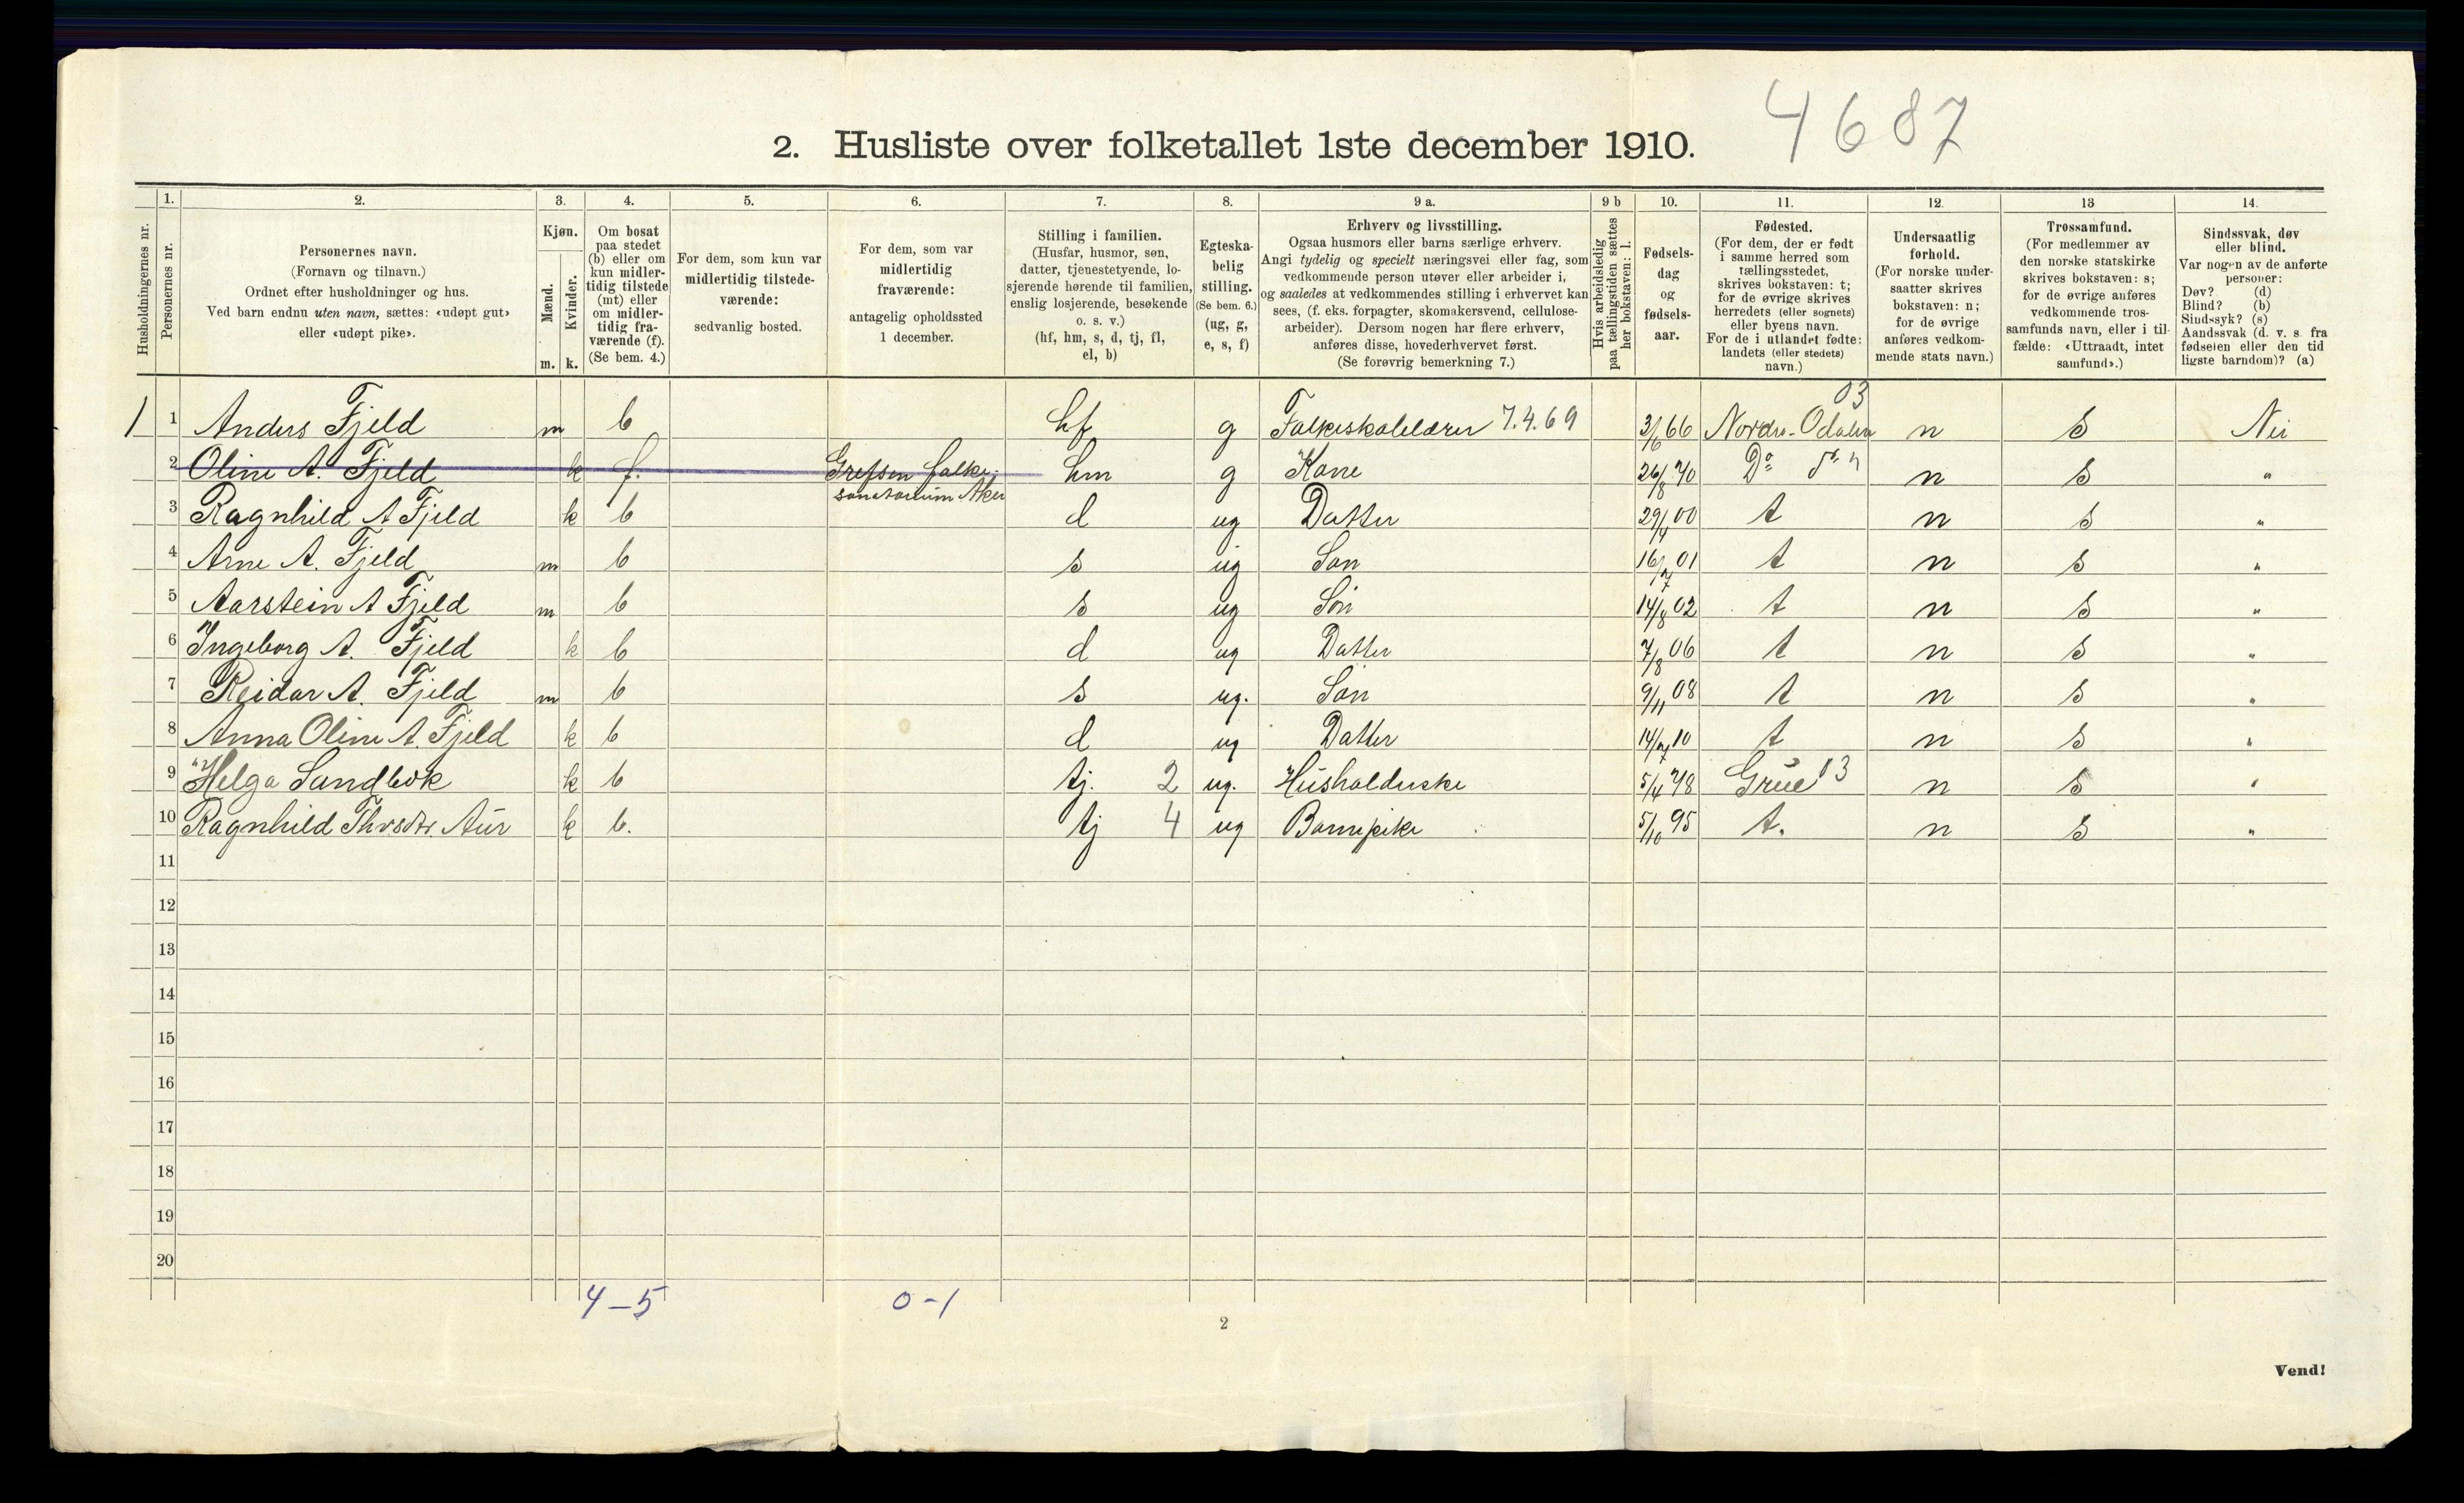 4687
2. Husliste over folketallet 1ste december 1910.
Husholdningernes nr.
1. Personernes nr.
2. Personernes navn.
(Fornavn og tilnavn.)
Ordnet efter husholdninger og hus.
Ved barn endnu uten navn, sættes: «udøpt gut»
eller «udøpt pike».
3. Kjøn.
Mænd. m.
Kvinder. k.
4. Om bosat
paa stedet
(b) eller om
kun midler-
tidig tilstede
(mt) eller
om midler-
tidig fra-
værende (f).
(Se bem. 4.)
5. For dem, som kun var
midlertidig tilstede-
værende:
sedvanlig bosted.
6. For dem, som var
midlertidig
fraværende:
antagelig opholdssted
1 december.
7. Stilling i familien.
(Husfar, husmor, søn,
datter, tjenestetyende, lo-
sjerende hørende til familien,
enslig losjerende, besøkende
o. s. v.)
(hf, hm, s, d, tj, fl,
el, b)
8. Egteska-
belig
stilling.
(Se bem. 6.)
(ug, g,
e, s, f)
9 a. Erhverv og livsstilling.
Ogsaa husmors eller barns særlige erhverv.
Angi tydelig og specielt næringsvei eller fag, som
vedkommende person utøver eller arbeider i,
og saaledes at vedkommendes stilling i erhvervet kan
sees, (f. eks. forpagter, skomakersvend, cellulose-
arbeider). Dersom nogen har flere erhverv,
anføres disse, hovederhvervet først.
(Se forøvrig bemerkning 7.)
9 b Hvis arbeidsledig
paa tællingstiden sættes
her bokstaven: l.
10. Fødsels-
dag
og
fødsels-
aar.
11. Fødested.
(For dem, der er født
i samme herred som
tællingsstedet,
skrives bokstaven: t;
for de øvrige skrives
herredets (eller sognets)
eller byens navn.
For de i utlandet fødte:
landets (eller stedets)
navn.)
12. Undersaatlig
forhold.
(For norske under-
saatter skrives
bokstaven: n;
for de øvrige
anføres vedkom-
mende stats navn.)
13 Trossamfund.
(For medlemmer av
den norske statskirke
skrives bokstaven: s;
for de øvrige anføres
vedkommende tros-
samfunds navn, eller i til-
fælde: «Uttraadt, intet
samfund».)
14. Sindssvak, døv
eller blind.
Var nogen av de anførte
personer:
Døv? (d)
Blind? (b)
Sindssyk? (s)
Aandssvak (d. v. s. fra
fødselen eller den tid
ligste barndom)? (a)
03
1 1 Anders Fjeld m b hf g Folkeskolelærer 7.4.69 3/6 66 Nordre-Odalen n s Nei
2 Oline A. Fjeld k f. Grefsen folke- hm g Kone 26/8 70 Do n s "
sanatorium Aker
3 Ragnhild A Fjeld k b d ug Datter 29/4 00 t n s "
4 Arne A. Fjeld m b s ug Søn 16/7 01 t n s "
5 Aarstein A Fjeld m b s ug Søn 14/8 02 t n s "
6 Ingeborg A. Fjeld k b d ug Datter 7/8 06 t n s "
7 Reidar A. Fjeld m b s ug. Søn 9/11 08 t n s "
8 Anna Oline A. Fjeld k b d ug Datter 14/7 10 t n s "
9 Helga Sandbek k b tj. 2 ug. Husholderske 5/4 78 Grue 03 n s "
10 Ragnhild Thrsdtr. Aur k b. tj 4 ug Barnepike 5/10 95 t. n s "
11
12
13
14
15
16
17
18
19
20
4-5 0-1
2
Vend!